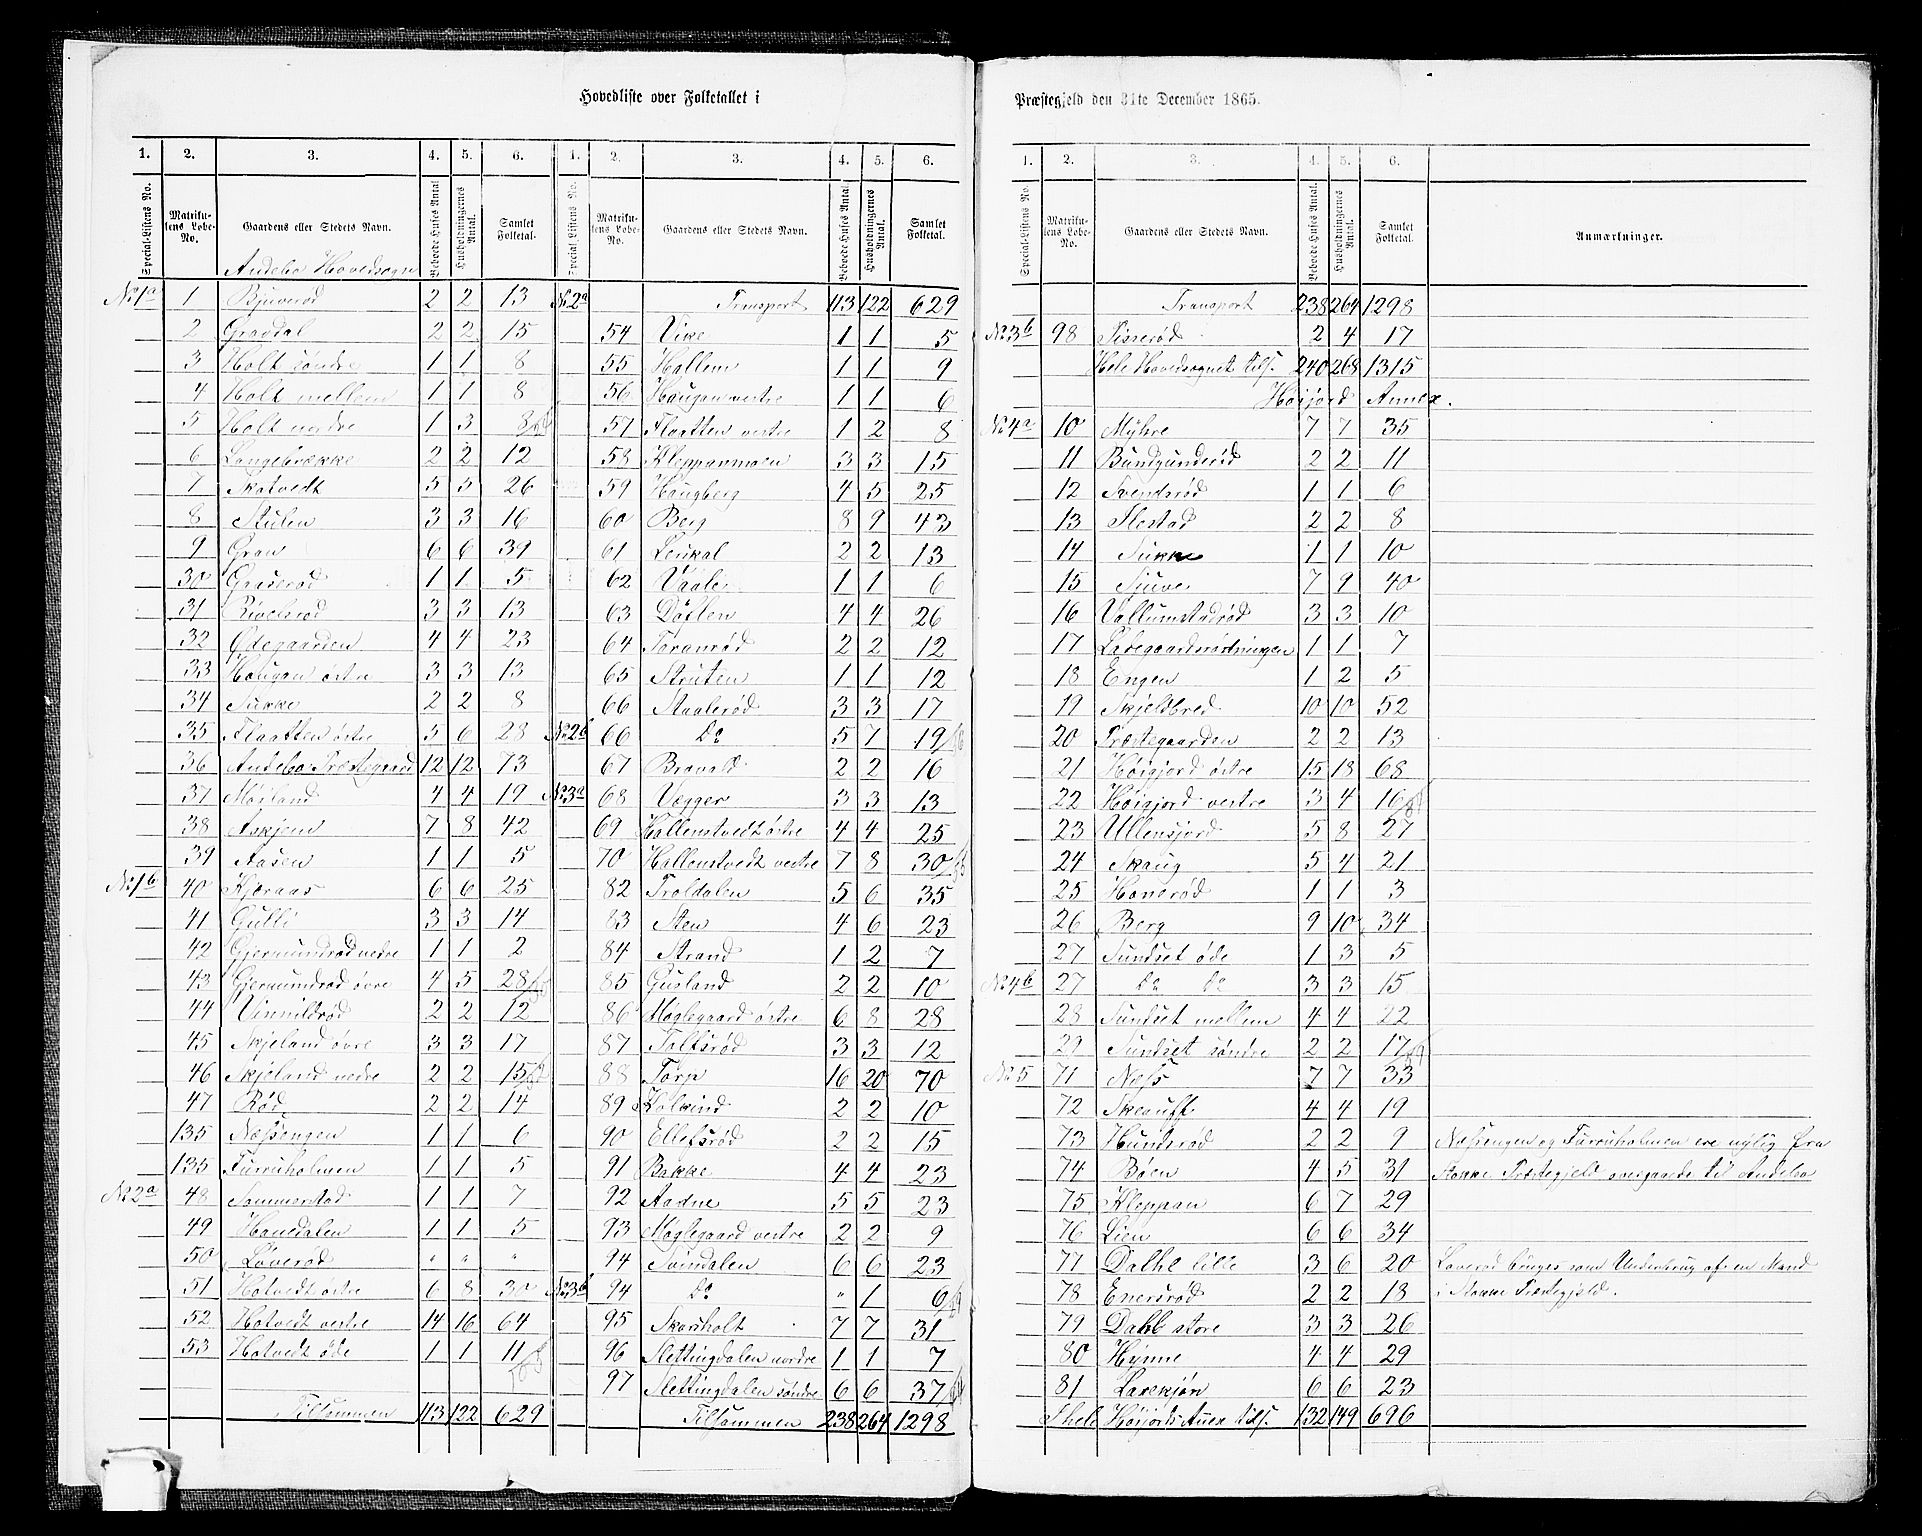 Hovedliste over Folketallet i
1. 2. 3. 4. 5. 6. 1. 2. 3. 4. 5. 6.
Special-Listens No. Matrikulens Løbe-No. Gaardens eller Stedets Navn. Beboede Huses Antal. Husholdningernes Antal. Samlet Folketal. Special-Listens No. Matrikulens Løbe-No. Gaardens eller Stedets Navn. Beboede Huses Antal. Husholdningernes Antal. Samlet Folketal.
Andebo Hovedsogn
No 1a 1 Bjuverød 2 2 13
2 Gravdal 2 2 15
3 Holt søndre 1 1 8
4 Holt mellem 1 1 8
5 Holt nordre 1 3 8
6 Langebrække 2 2 12
7 Skotvedt 5 5 26
8 Stulen 3 3 16
9 Gran 6 6 39
30 Graserød 1 1 5
31 Rivelsrød 3 3 13
32 Ødegaarden 4 4 23
33 Hougan østre 3 3 13
34 Sukke 2 2 8
35 Flaatten østre 5 6 28
36 Andebo Præstegaard 12 12 73
37 Møiland 4 4 19
38 Askjem 7 8 42
39 Aasen 1 1 5
No 1b 40 Kjæraas 6 6 25
41 Gulli 3 3 14
42 Gjermundrød nedre 1 1 2
43 Gjermundrød øvre 4 5 28
44 Vinnildrød 2 2 12
45 Skjeland øvre 3 3 17
46 Skjeland nedre 2 2 15
47 Rød 2 2 14
135 Næssengen 1 1 6
135 Furruholmen 1 1 5
No 2a 48 Sommerstad 1 1 7
49 Hanedalen 1 1 5
50 Løverød " " "
51 Hotvedt østre 6 8 30
52 Hotvedt vestre 14 16 64
53 Hotvedt øde 1 1 11
Tilsammen 113 122 629
No 2a Transport 113 122 629
54 Vike 1 1 5
55 Hallem 1 1 9
56 Haugan vestre 1 1 6
57 Flaatten vestre 1 2 8
58 Kleppanmoen 3 3 15
59 Haugberg 4 5 25
60 Berg 8 9 43
61 Leukal 2 2 13
62 Vaale 1 1 6
63 Døvlen 4 4 26
64 Toranrød 2 2 12
65 Struten 1 1 12
66 Staalerød 3 3 17
No 2b 66 Do 5 7 19
67 Bravald 2 2 16
No 3a 68 Vegger 3 3 13
69 Hallenstvedt østre 4 4 25
70 Hallenstvedt vestre 7 8 30
82 Troldalen 5 6 35
83 Sten 4 6 23
84 Strand 1 2 7
85 Gusland 2 2 10
86 Møglegaard østre 6 8 28
87 Tolfsrød 3 3 12
88 Torp 16 20 70
89 Kolkind 2 2 10
90 Ellefsrød 2 2 15
91 Bakke 4 4 23
92 Aadne 5 5 23
93 Møglegaard vestre 2 2 9
94 Svindalen 6 6 23
No 3b 94 Do " 1 6
95 Skarsholt 7 7 31
96 Slettingdalen nordre 1 1 7
97 Slettingdalen søndre 6 6 37
Tilsammen 238 264 1298
Præstegjeld den 31te December 1865.
1. 2. 3. 4. 5. 6.
Special-Listens No. Matrikulens Løbe-No. Gaardens eller Stedets Navn. Beboede Huses Antal. Husholdningernes Antal. Samlet Folketal. Anmærkninger.
Transport 238 264 1298
No 3b 98 Fisserød 2 4 17
Hele Hovedsognet tils. 240 268 1315
Høijord Annex.
No 4a 10 Myhre 7 7 35
11 Bundgunderød 2 2 11
12 Svendsrød 1 1 6
13 Flestad 2 2 8
14 Sukke 1 1 10
15 Sjuve 7 9 40
16 Vallumstadrød 3 3 10
17 Ladegaardsrødningen 1 1 7
18 Engen 1 2 5
19 Skjeldbred 10 10 52
20 Præstegaarden 2 2 13
21 Høigjord østre 15 18 68
22 Høigjord vestre 3 4 16
23 Ullensjord 5 8 27
24 Skaug 5 4 21
25 Honerød 1 1 3
26 Berg 9 10 34
27 Sundset øde 1 3 5
No 4b 27 Do Do 3 3 15
28 Sundset mellem 4 4 22
29 Sundset søndre 2 2 17
No 5 71 Næss 7 7 33
72 Skeauff 4 4 19
73 Hundsrød 2 2 9 Næssengen og Furruholmen ere nylig fra
74 Bøen 4 5 31 Stokke Præstegjeld overgaaede til Andebo
75 Kleppan 6 7 29
76 Lien 6 6 34
77 Dalhe lille 3 6 20 Løverød bruges som Underbrug af en Mand
78 Enersrød 2 2 18 i Stokke Præstegjeld.
79 Dalhe store 3 3 26
80 Hynne 4 4 29
81 Lakskjøn 6 6 23
Thele Høijords Anex tils. 132 149 696